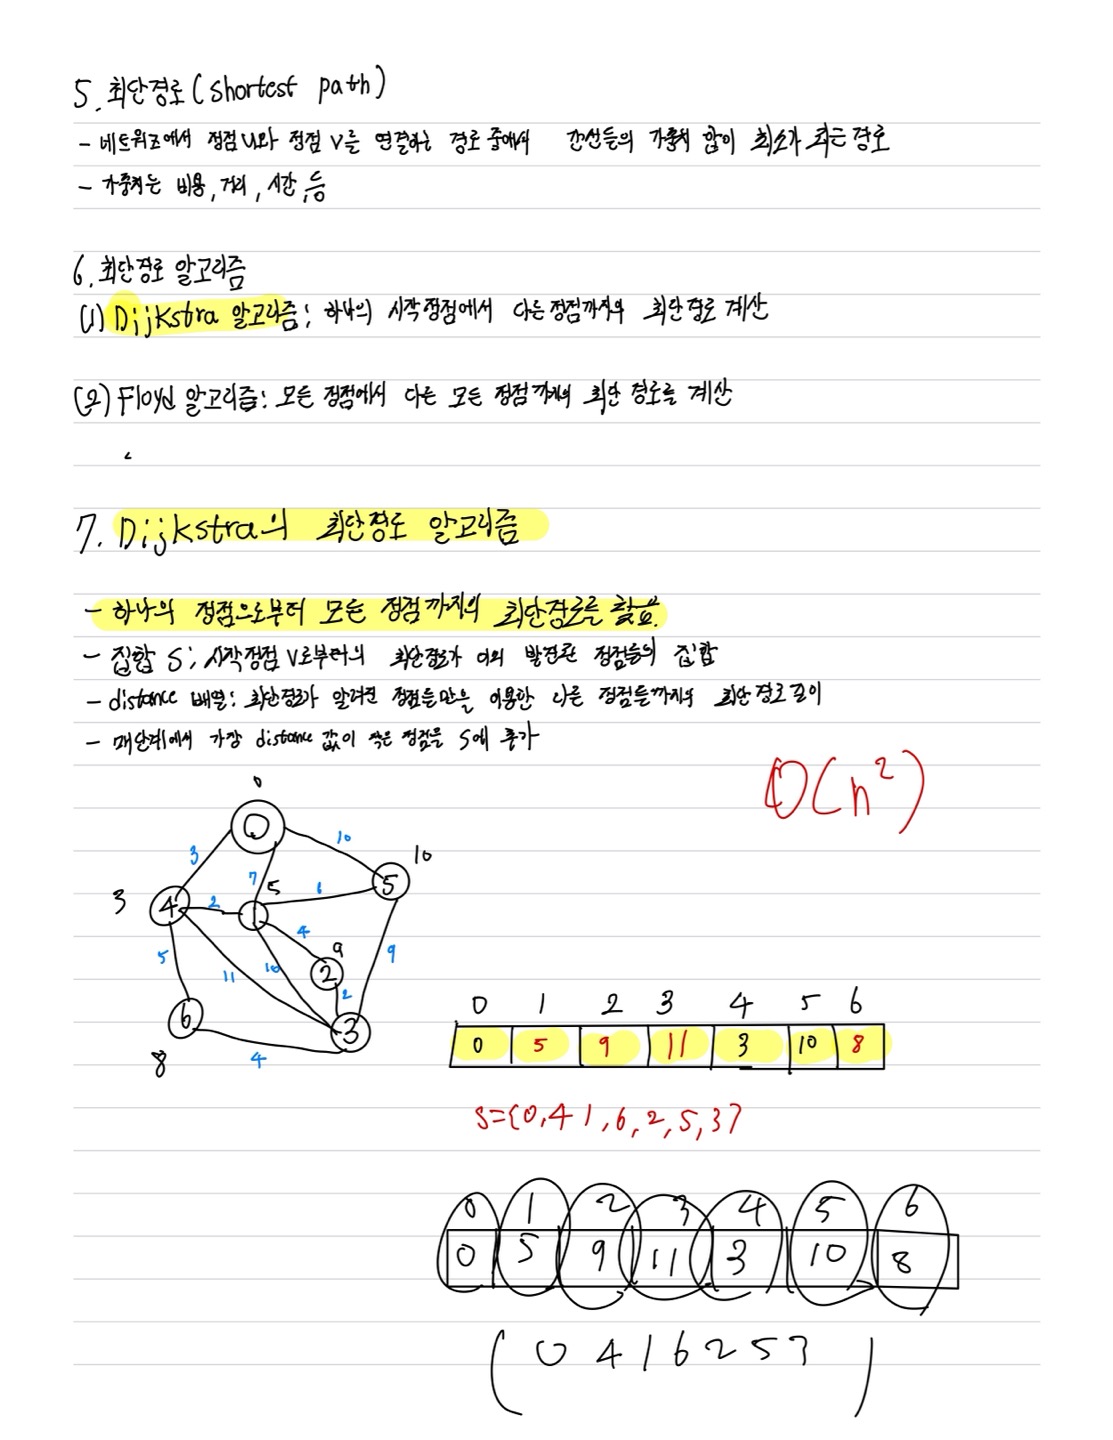 5. 최단경로(shortest path)
- 네트워크에서 정점 u와 정점 v를 연결하는 경로 중에서 간선들의 가중치 합이 최소가 되는 경로
- 가중치는 비용, 거리, 시간 등
6. 최단경로 알고리즘
(1) Dijkstra 알고리즘: 하나의 시작정점에서 다른정점까지의 최단경로 계산
(2) Floyd 알고리즘: 모든 정점에서 다른 모든 정점까지의 최단 경로를 계산
7. Dijkstra의 최단경로 알고리즘
- 하나의 정점으로부터 모든 정점까지의 최단경로를
- 집합 S: 시작정점 v로부터의 최단경로가 이미 발견된 정점들의 집합
- distance 배열: 최단경로가 알려진 정점들만을 이용한 다른 정점들까지의 최단경로길이
- 매단계에서 가장 distance 값이 작은 정점을 S에 추가
O(n²)
0
0
3 10 10
7 5 6 5
3 4 2 1
4 9
5 11 10 2 2 9
6 3
8 4
0 1 2 3 4 5 6
0 5 9 11 3 10 8
S={0,4 1,6,2,5,3}
0 1 2 3 4 5 6
0 5 9 11 3 10 8
(0 4 1 6 2 5 3)